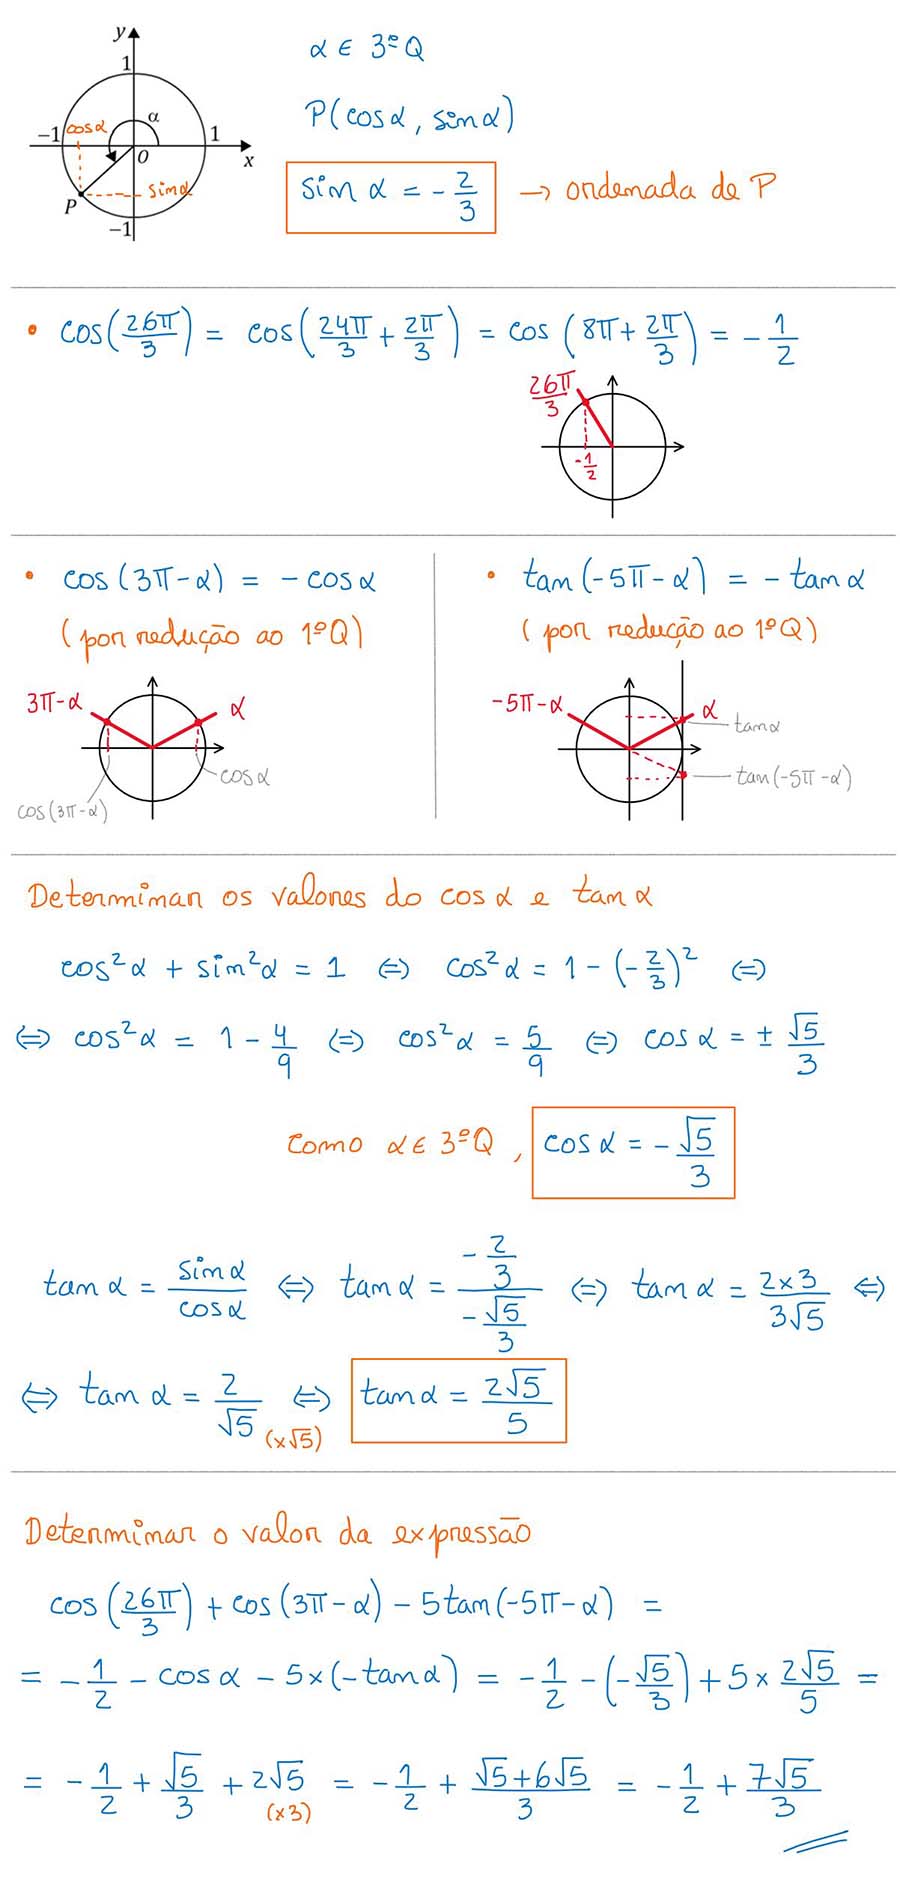 y
1
α ∈ 3ºQ
α
P(cosα, sinα)
−1 cosα 1
O x
sinα = −2/3 → ordenada de P
sinα
P
−1
• cos(26π/3) = cos(24π/3 + 2π/3) = cos(8π + 2π/3) = −1/2
26π/3
−1/2
• cos(3π−α) = −cosα
(por redução ao 1ºQ)
3π−α α
cosα
cos(3π−α)
• tan(−5π−α) = −tanα
(por redução ao 1ºQ)
−5π−α α
tanα
tan(−5π−α)
Determinar os valores do cosα e tanα
cos²α + sin²α = 1 ⇔ cos²α = 1 − (−2/3)² ⇔
⇔ cos²α = 1 − 4/9 ⇔ cos²α = 5/9 ⇔ cosα = ± √5/3
Como α ∈ 3ºQ, cosα = −√5/3
tanα = sinα/cosα ⇔ tanα = (−2/3)/(−√5/3) ⇔ tanα = 2×3/3√5 ⇔
⇔ tanα = 2/√5 (×√5) ⇔ tanα = 2√5/5
Determinar o valor da expressão
cos(26π/3) + cos(3π−α) − 5tan(−5π−α) =
= −1/2 − cosα − 5×(−tanα) = −1/2 − (−√5/3) + 5 × 2√5/5 =
= −1/2 + √5/3 + 2√5 (×3) = −1/2 + √5+6√5/3 = −1/2 + 7√5/3